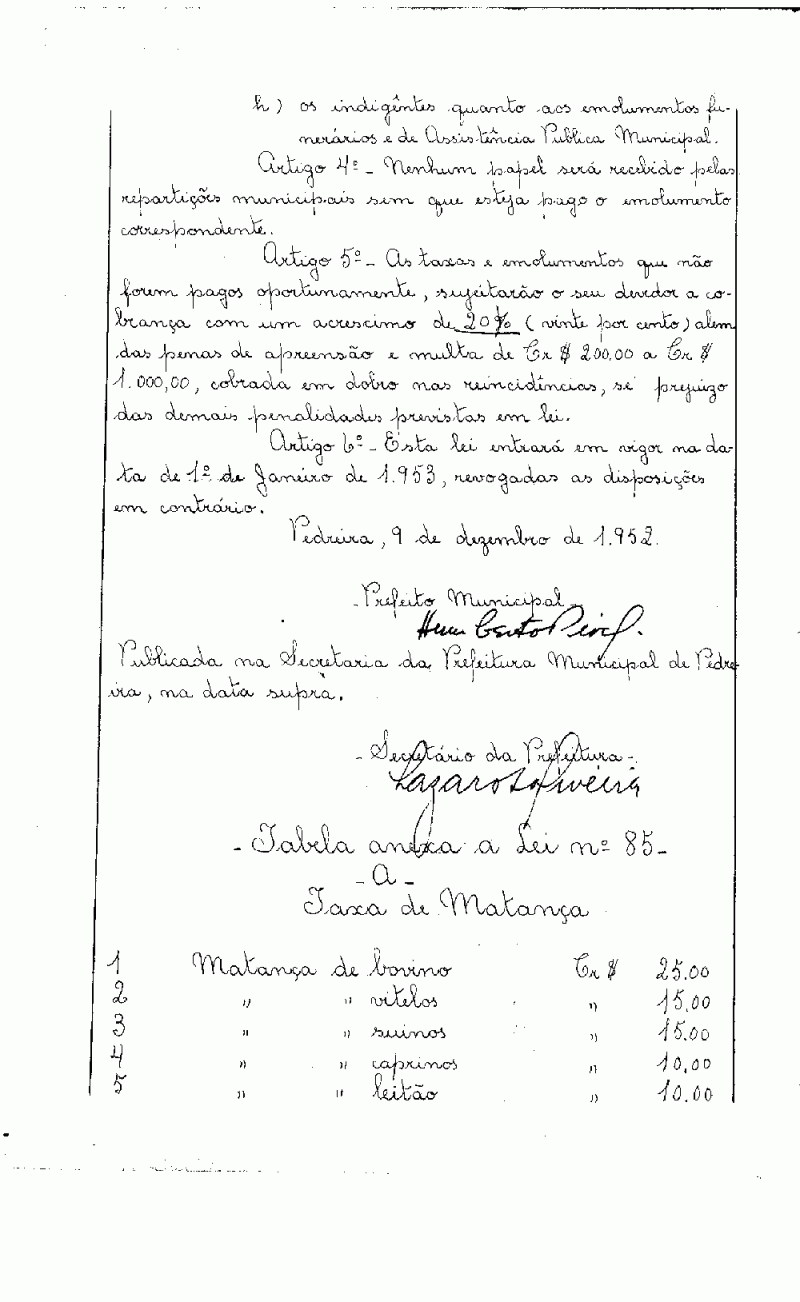 h) os indigêntes quanto aos emolumentos fu-
nerários e de Assistência Publica Municipal.
Artigo 4º - Nenhum papel será recebido pelas
repartições municipais sem que esteja pago o emolumento
correspondente.
Artigo 5º - As taxas e emolumentos que não
forem pagos oportunamente, sujeitarão o seu devedor a co-
brança com um acrescimo de 20% (vinte por cento) alem
das penas de apreensão e multa de Cr $ 200.00 a Cr $
1.000,00, cobrada em dobro nas reincidências, sé prejuizo
das demais penalidades previstas em lei.
Artigo 6º - Esta lei entrará em vigor na da-
ta de 1º de Janeiro de 1.953, revogadas as disposições
em contrário.
Pedreira, 9 de dezembro de 1.952.
- Prefeito Municipal -
Publicada na Secretaria da Prefeitura Municipal de Pedre-
ira, na data supra.
- Secretário da Prefeitura -
- Tabela anexa a Lei nº 85 -
- A -
Taxa de Matança
1 Matança de bovino Cr $ 25.00
2 " " vitelos " 15,00
3 " " suinos " 15.00
4 " " caprinos " 10,00
5 " " leitão " 10.00